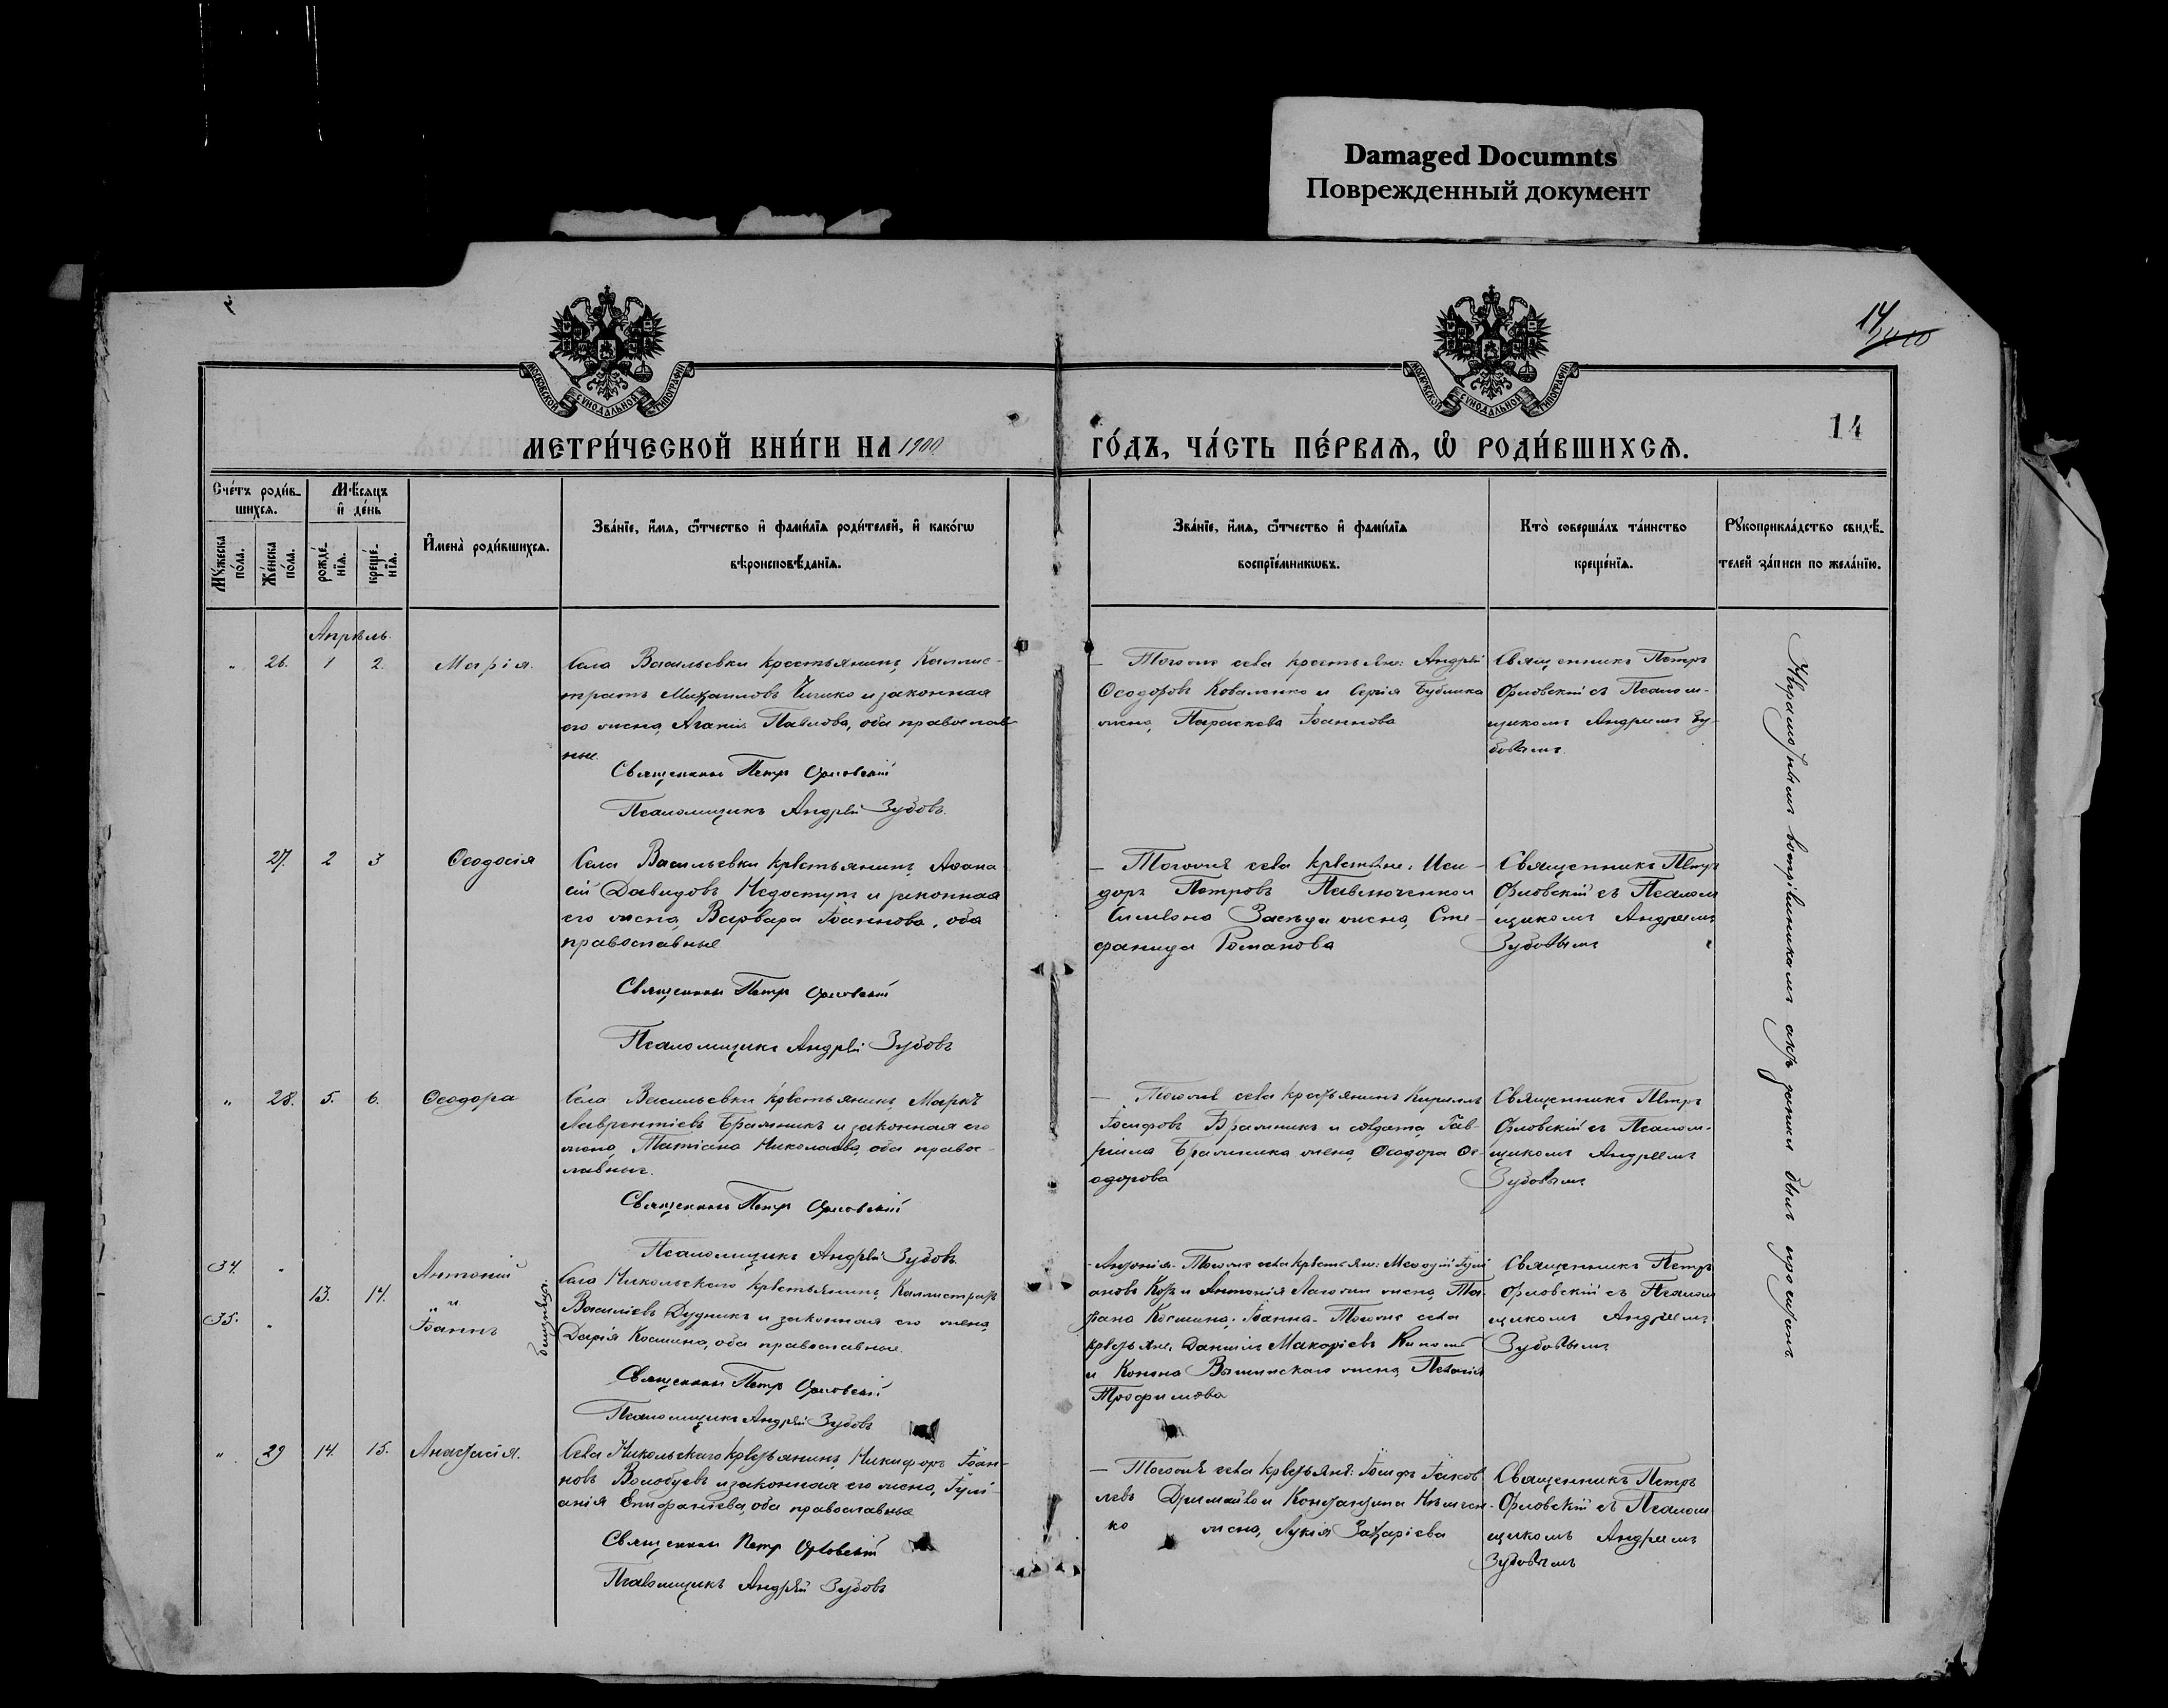 Damaged Documnts
Поврежденный документ
14
14
МОСКОВСКОЙ СУНОДАЛЬНОЙ ТИПОГРАФІИ
МОСКОВСКОЙ СУНОДАЛЬНОЙ ТИПОГРАФІИ
МЕТРИ́ЧЕСКОЙ КНИ́ГИ НА 1900
ГО́ДЪ, ЧА́СТЬ ПЕ́РВАЯ, Ѡ РОДИ́ВШИХСЯ.
Сче́тъ роди́в-
шихся.
Му́жеска
по́ла.
Же́нска
по́ла.
Мѣ́сяцъ
и де́нь
рожде́-
нїя.
креще́-
нїя.
Имена̀ роди́вшихся.
Зва́нїе, и́мя, ѻ́тчество и фами́лїя роди́телей, и како́гѡ
вѣроисповѣ́данїя.
Зва́нїе, и́мя, ѻ́тчество и фами́лїя
воспрїе́мникѡвъ.
Кто̀ соверша́лъ та́инство
креще́нїя.
Рукоприкла́дство свидѣ́-
телей за́писи по жела́нїю.
Апрѣль.
" 26. 1 2. Марія.
Села Васильевки крестьянинъ Каллис-
тратъ Михаиловъ Чишко и законная
его жена Павлова, оба православ-
ные.
Священникъ Петръ Орловскій
Псаломщикъ Андрей Зубовъ.
— Тогоже села крестьяне: Андрей
Ѳеодоровъ Коваленко и Сергія Бублика
жена, Параскева Іоаннова
Священникъ Петръ
Орловскій съ Псалом-
щикомъ Андреемъ Зу-
бовымъ.
27. 2 3 Ѳеодосія
Села Васильевки крестьянинъ Аѳана
сій Давидовъ Недоступъ и законная
его жена, Варвара Іоаннова, оба
православные
Священникъ Петръ Орловскій
Псаломщикъ Андрей Зубовъ
— Тогоже села крестьяне: Иси-
доръ Петровъ Павлюченко и
Симеона жена, Сте-
фанида Романова
Священникъ Петръ
Орловскій съ Псалом
щикомъ Андреемъ
Зубовымъ
" 28. 5. 6. Ѳеодора
Села Васильевки крестьянинъ Маркъ
Лаврентіевъ Бражникъ и законная его
жена, Татіана Николаева, оба правос-
лавные.
Священникъ Петръ Орловскій
Псаломщикъ Андрей Зубовъ.
— Тогоже села крестьянинъ Кириллъ
Іосифовъ Бражникъ и солдата Гав-
ріила Бражника жена, Ѳеодора Ѳе-
одорова
Священникъ Петръ
Орловскій съ Псалом-
щикомъ Андреемъ
Зубовымъ
34. " Антоній
13. 14. " "
35. " Іоаннъ
близнецы.
Села Никольскаго крестьянинъ Каллистратъ
Василіевъ Дудникъ и законная его жена,
Дарія Космина, оба православные.
Священникъ Петръ Орловскій
Псаломщикъ Андрей Зубовъ
Антонія. Тогоже села крестьяне: Меѳодій Іулі
ановъ и Антонія жена, Та-
тіана Космина. Іоанна. Тогоже села
крестьяне: Даніилъ Макаріевъ
и Конона жена, Пелагія
Трофимова
Священникъ Петръ
Орловскій съ Псалом
щикомъ Андреемъ
Зубовымъ
" 29 14. 15. Анастасія.
Села Никольскаго крестьянинъ Никифоръ Іоан-
новъ Волобуевъ и законная его жена, Іулі-
анія Епифаніева, оба православные
Священникъ Петръ Орловскій
Псаломщикъ Андрей Зубовъ
— Тогоже села крестьяне: Іосифъ Іаков
левъ и Константина Нѣмчен-
ко жена, Лукія Захаріева
Священникъ Петръ
Орловскій съ Псалом-
щикомъ Андреемъ
Зубовымъ
Неграмотнымъ воспріемникамъ актъ записи былъ прочитанъ.